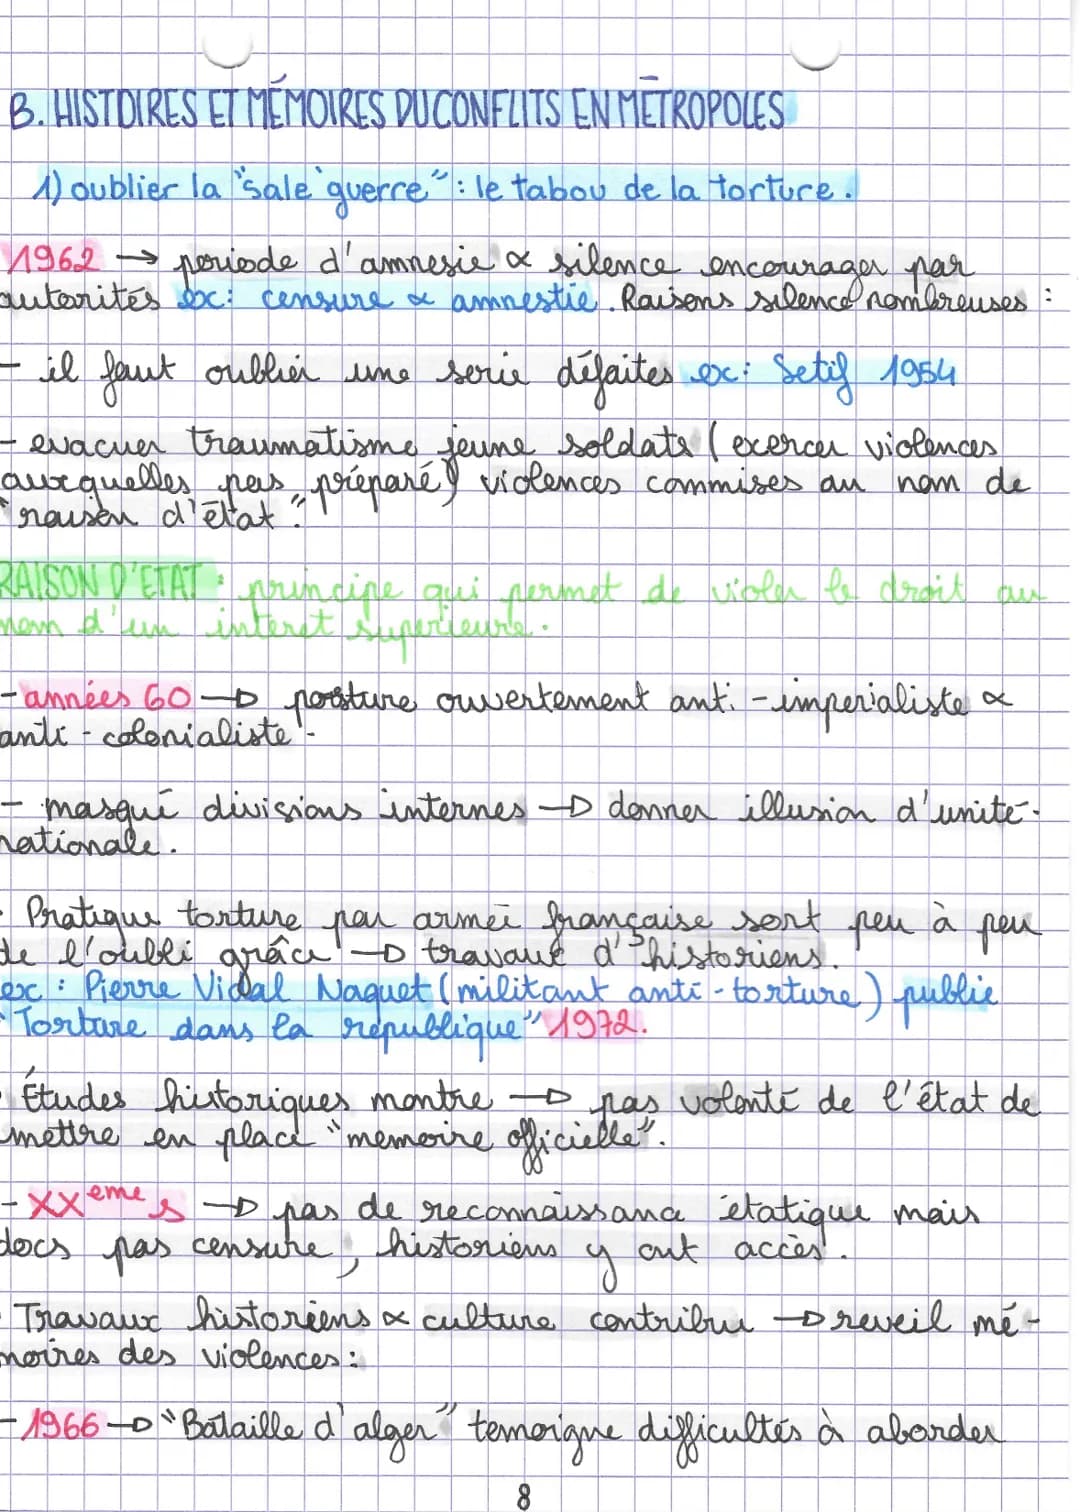 B. HISTOIRES ET MÉMOIRES DU CONFLITS EN MÉTROPOLES
1) oublier la "sale guerre" : le tabou de la torture.
1962 → periode d'amnesie & silence encourager par
autorités ex: censure & amnestie. Raisons silence nombreuses :
- il faut oublier une serie défaites ex: Setif 1954
- evacuer traumatisme jeune soldats (exercer violences
auxquelles pas préparé) violences commises au nom de
"raison d'état".
RAISON D'ETAT : principe qui permet de violer le droit au
nom d'un interet superieure.
- années 60 → posture ouvertement anti-imperialiste &
anti-colonialiste.
- masqué divisions internes → donner illusion d'unité
nationale.
- Pratique torture par armée française sort peu à peu
de l'oubli grâce → travaux d'historiens.
ex : Pierre Vidal Naquet (militant anti-torture) publie
"Torture dans la république" 1972.
- Études historiques montre → pas volonté de l'état de
mettre en place "memoire officielle".
- XXeme s → pas de reconnaissance étatique mais
docs pas censure, historiens y ont accès.
- Travaux historiens & culture contribue → reveil mé-
moires des violences :
- 1966 → "Bataille d'alger" temoigne difficultés à aborder
8